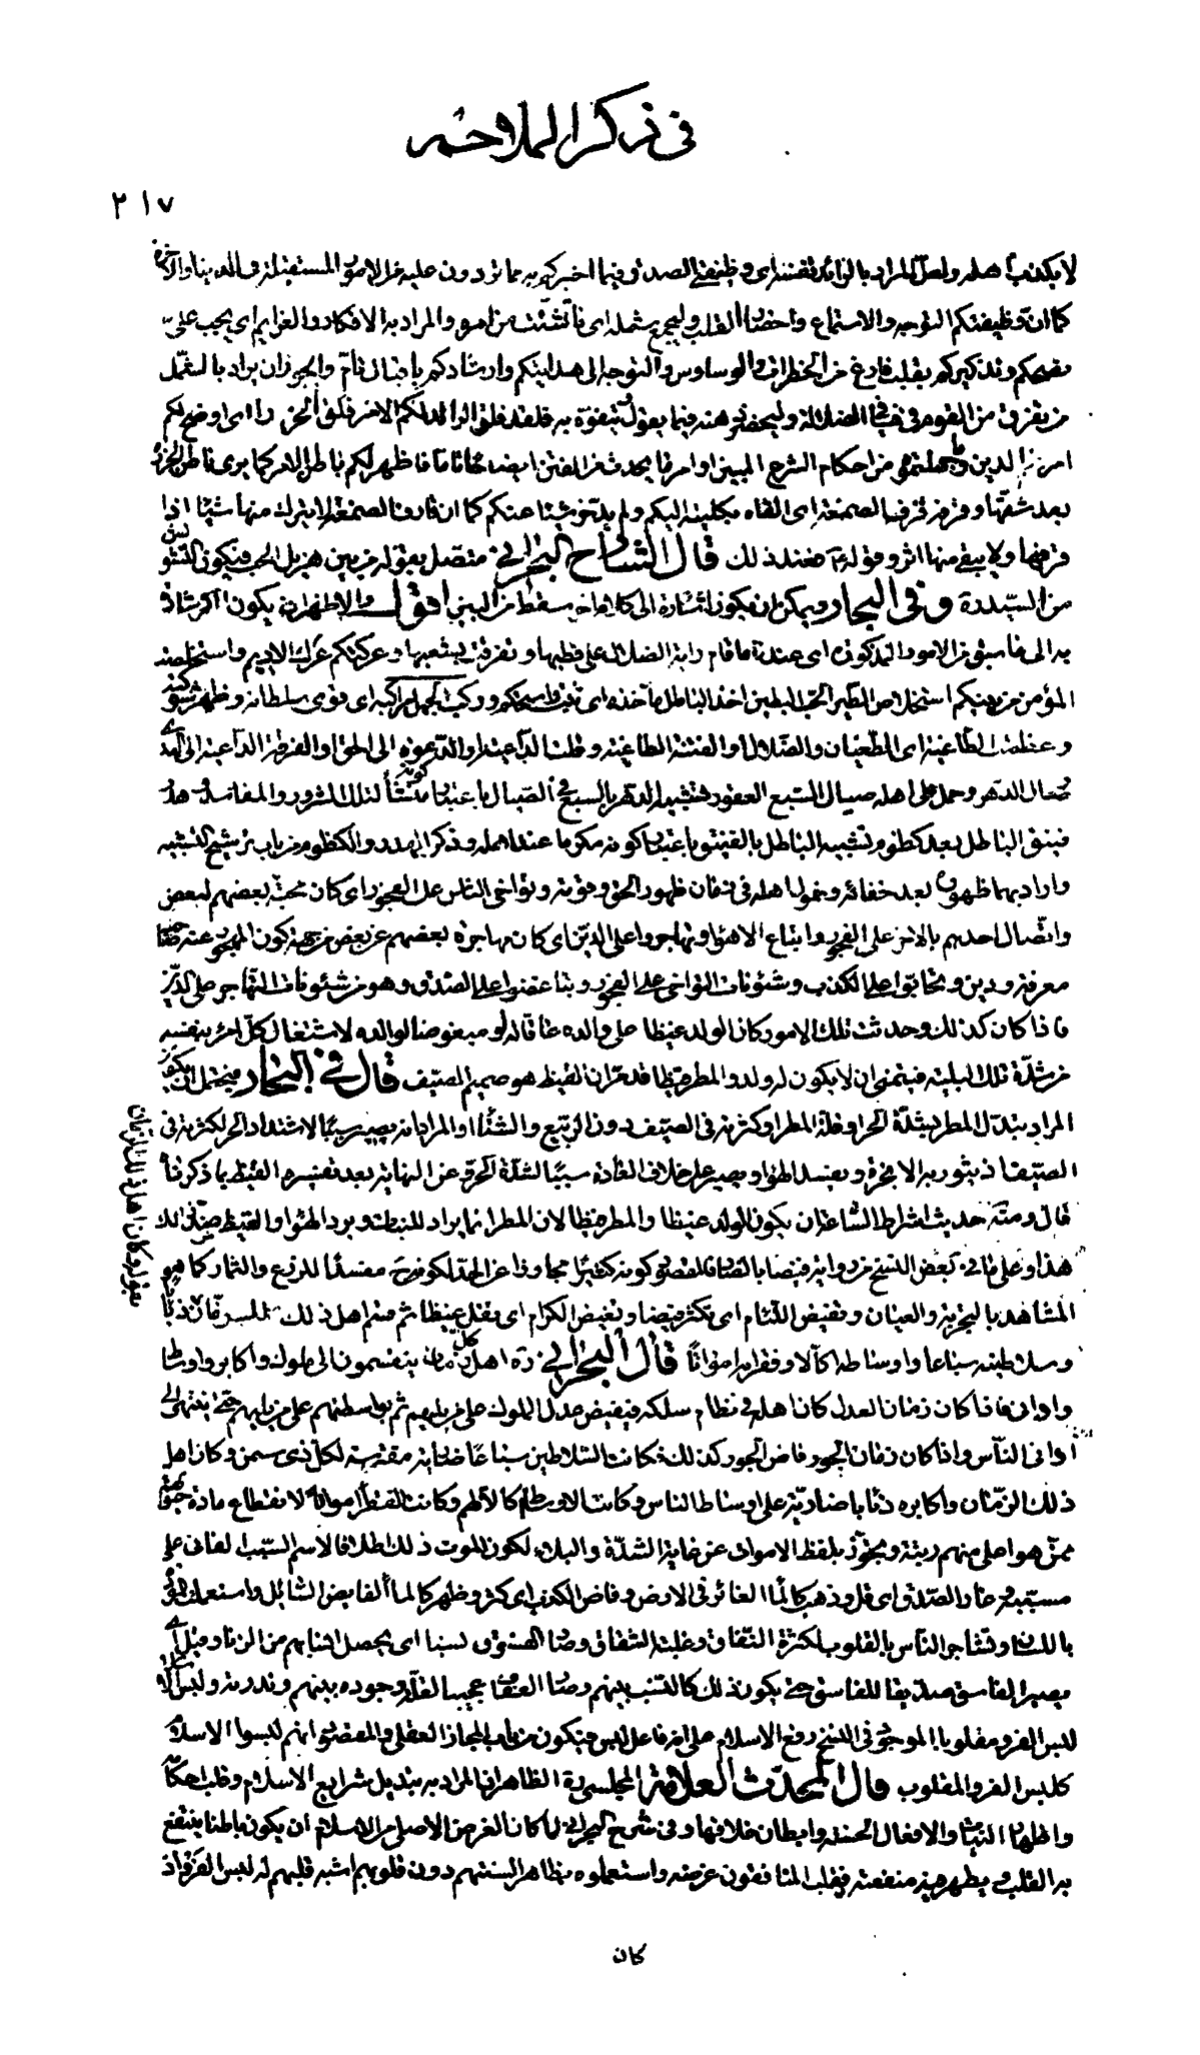 في ذكر الملاحم
٢١٧
لا يكذب اهله ولعل المراد بالرائد نفسه اى وظيفتى الصدق فيما اخبركم به مما تردون عليه من الامور المستقبلة فى الدنيا والآخرة
كما ان وظيفتكم التوجه والاستماع واحضار القلب وليجمع شمله اى ما تشتت من امره والمراد به الافكار والعزايم اى يجب على
نصحكم وتذكيركم بقلب فارغ من الخطرات والوساوس والتوجه الى هدايتكم وارشادكم باقبال تام ويجوز ان يراد بالشمل
من تفرق من القوم فى فيافى الضلالة وليحضر ذهنه فيما يقول ويتفوه به فلقد فلق الرائد لكم الامر فلق الخرزة اى اوضح لكم
امر الدين وما جهلتموه من احكام الشرع المبين او امر ما يحدث من الفتن ايضاحا تاما فاظهر لكم باطن الامر كما يرى باطن الخرزة
بعد شقها وقرفه قرف الصمغة اى القاه بكليته اليكم ولم يدخر شيئا عنكم كما ان قارف الصمغة لا يترك منها شيئا اذا
قرفها ولا يبقى منها اثر وقوله فعند ذلك قال الشارح البحرانى متصل بقوله من بين هزيل الحب فيكون التشويش
من السيد ره وفى البحار ويمكن ان يكون اشارة الى كلام اخر سقط من البين اقول والاظهر ان يكون اشارة
به الى ما سبق من الامور المذكورة اى عند ما قام راية الضلال على قطبها وتفرقت بشعبها وعركتكم عرك الاديم واستخلصت
المؤمن من بينكم استخلاص الطير الحب البطين اخذ الباطل مآخذه اى ثبت واستحكم وركب الجهل مراكبه اى قوى سلطانه وظهر شوكته
وعظمت الطاغية اى الطغيان والضلال او الفتنة الطاغية وقلت الداعية او الدعوة الى الحق او الفرقة الداعية اليه
وصال الدهر وحمل على اهله صيال السبع العقور فتشبيه الدهر بالسبع فى الصيال باعتبار كونه منشأ لتلك الشرور والمفاسد وهدر
فنيق الباطل بعد كظوم وتشبيه الباطل بالفنيق باعتبار كونه مكرما عند اهله وذكر الهدر والكظوم من باب ترشيح التشبيه
واراد بهما ظهوره بعد خفائه وخمول اهله فى زمان ظهور الحق وقوته وتواخى الناس على الفجور اى كان محبة بعضهم لبعض
واتصال احدهم بالاخر على الفجور واتباع الاهواء وتهاجروا على الدين اى كان مهاجرة بعضهم عن بعض من جهة كون المهجور عنه صاحب
معرفة ودين وتحابوا على الكذب وشئونات التواخى على الفجور وتباغضوا على الصدق وهو من شئونات التهاجر على الدين
فاذا كان كذلك وحدثت تلك الامور كان الولد غيظا على والده عاقا له او مبغوضا لوالده لاشتغال كل امرء بنفسه
من شدة تلك البلية فيتمنى ان لا يكون له ولد والمطر قيظا قد مر ان القيظ هو صميم الصيف قال فى البحار فيحتمل ان يكون
المراد تبدل المطر بشدة الحر او قلة المطر او كثرته فى الصيف دون الربيع والشتاء او المراد انه يصير سببا لاشتداد الحر لكثرته فى
الصيف اذ يثور به الابخرة ويفسد الهواء ويصير على خلاف العادة سببا لشدة الحر وعن النهاية بعد تفسيره القيظ بما ذكرنا
قال ومنه حديث اشراط الساعة ان يكون الولد غيظا والمطر قيظا لان المطر انما يراد للنبات وبرد الهواء والقيظ ضد ذلك
هذا وعلى ما فى بعض النسخ من رواية فيضا بالضاد فالمقصود كونه كثيرا مجاوزا عن الحد لكونه ح مفسدا للزرع والثمار كما هو
المشاهد بالتجربة والعيان وتفيض اللئام اى تكثر فيضا وتغيض الكرام اى يقل غيضا ثم منهم اهل ذلك الزمان ذئابا
وسلاطينه سباعا واوساطه اكالا وفقرائه امواتا قال البحرانى ره اهل كل زمان ينقسمون الى ملوك واكابر واوساط
وادانى فاذا كان زمان العدل كان اهله فى نظام سلكه فيفيض عدل الملوك على من يليهم ثم بواسطتهم على من يليهم حتى ينتهى الى
ادانى الناس واذا كان زمان الجور فاض الجور كذلك فكانت السلاطين سباعا ضارية مفترسة لكل ذى سمن وكان اهل
ذلك الزمان واكابره ذئابا ضارية على اوساط الناس وكانت الاوساط اكالا لهم وكانت الفقراء امواتا لانقطاع مادة حيوتهم
ممن هو اعلى منهم رتبة وتجوز بلفظ الاموات عن غاية الشدة والبلاء لكون الموت ذلك اطلاقا لاسم السبب الغائى على
مسببه وغار الصدق اى قل وذهب كالماء الغائر فى الارض وفاض الكذب اى كثر وظهر كالماء الفايض السائل واستعملت المودة
باللسان وتشاجر الناس بالقلوب لكثرة النفاق وغلبة الشقاق وصار الفسوق نسبا اى يحصل انسابهم من الزنا وقيل اى
يصير الفاسق صديقا للفاسق حتى يكون ذلك كالنسب بينهم وصار العفاف عجبا لقلة وجوده بينهم وندرته ولبس الاسلام
لبس الفرو مقلوبا الموجود فى النسخ رفع الاسلام على انه فاعل لبس فيكون من باب المجاز العقلى والمقصود انهم لبسوا الاسلام
كلبس الفرو المقلوب قال المحدث العلامة المجلسى ره الظاهر ان المراد به تبديل شرايع الاسلام وقلب احكامه
واظهار النيات والافعال الحسنة وابطان خلافها وفى شرح البحرانى لما كان الغرض الاصلى من الاسلام ان يكون باطنا ينتفع
به القلب ويظهر فيه منفعته فقلب المنافقون غرضه واستعملوه بظاهر السنتهم دون قلوبهم اشبه قلبهم له لبس الفرو اذ
كان